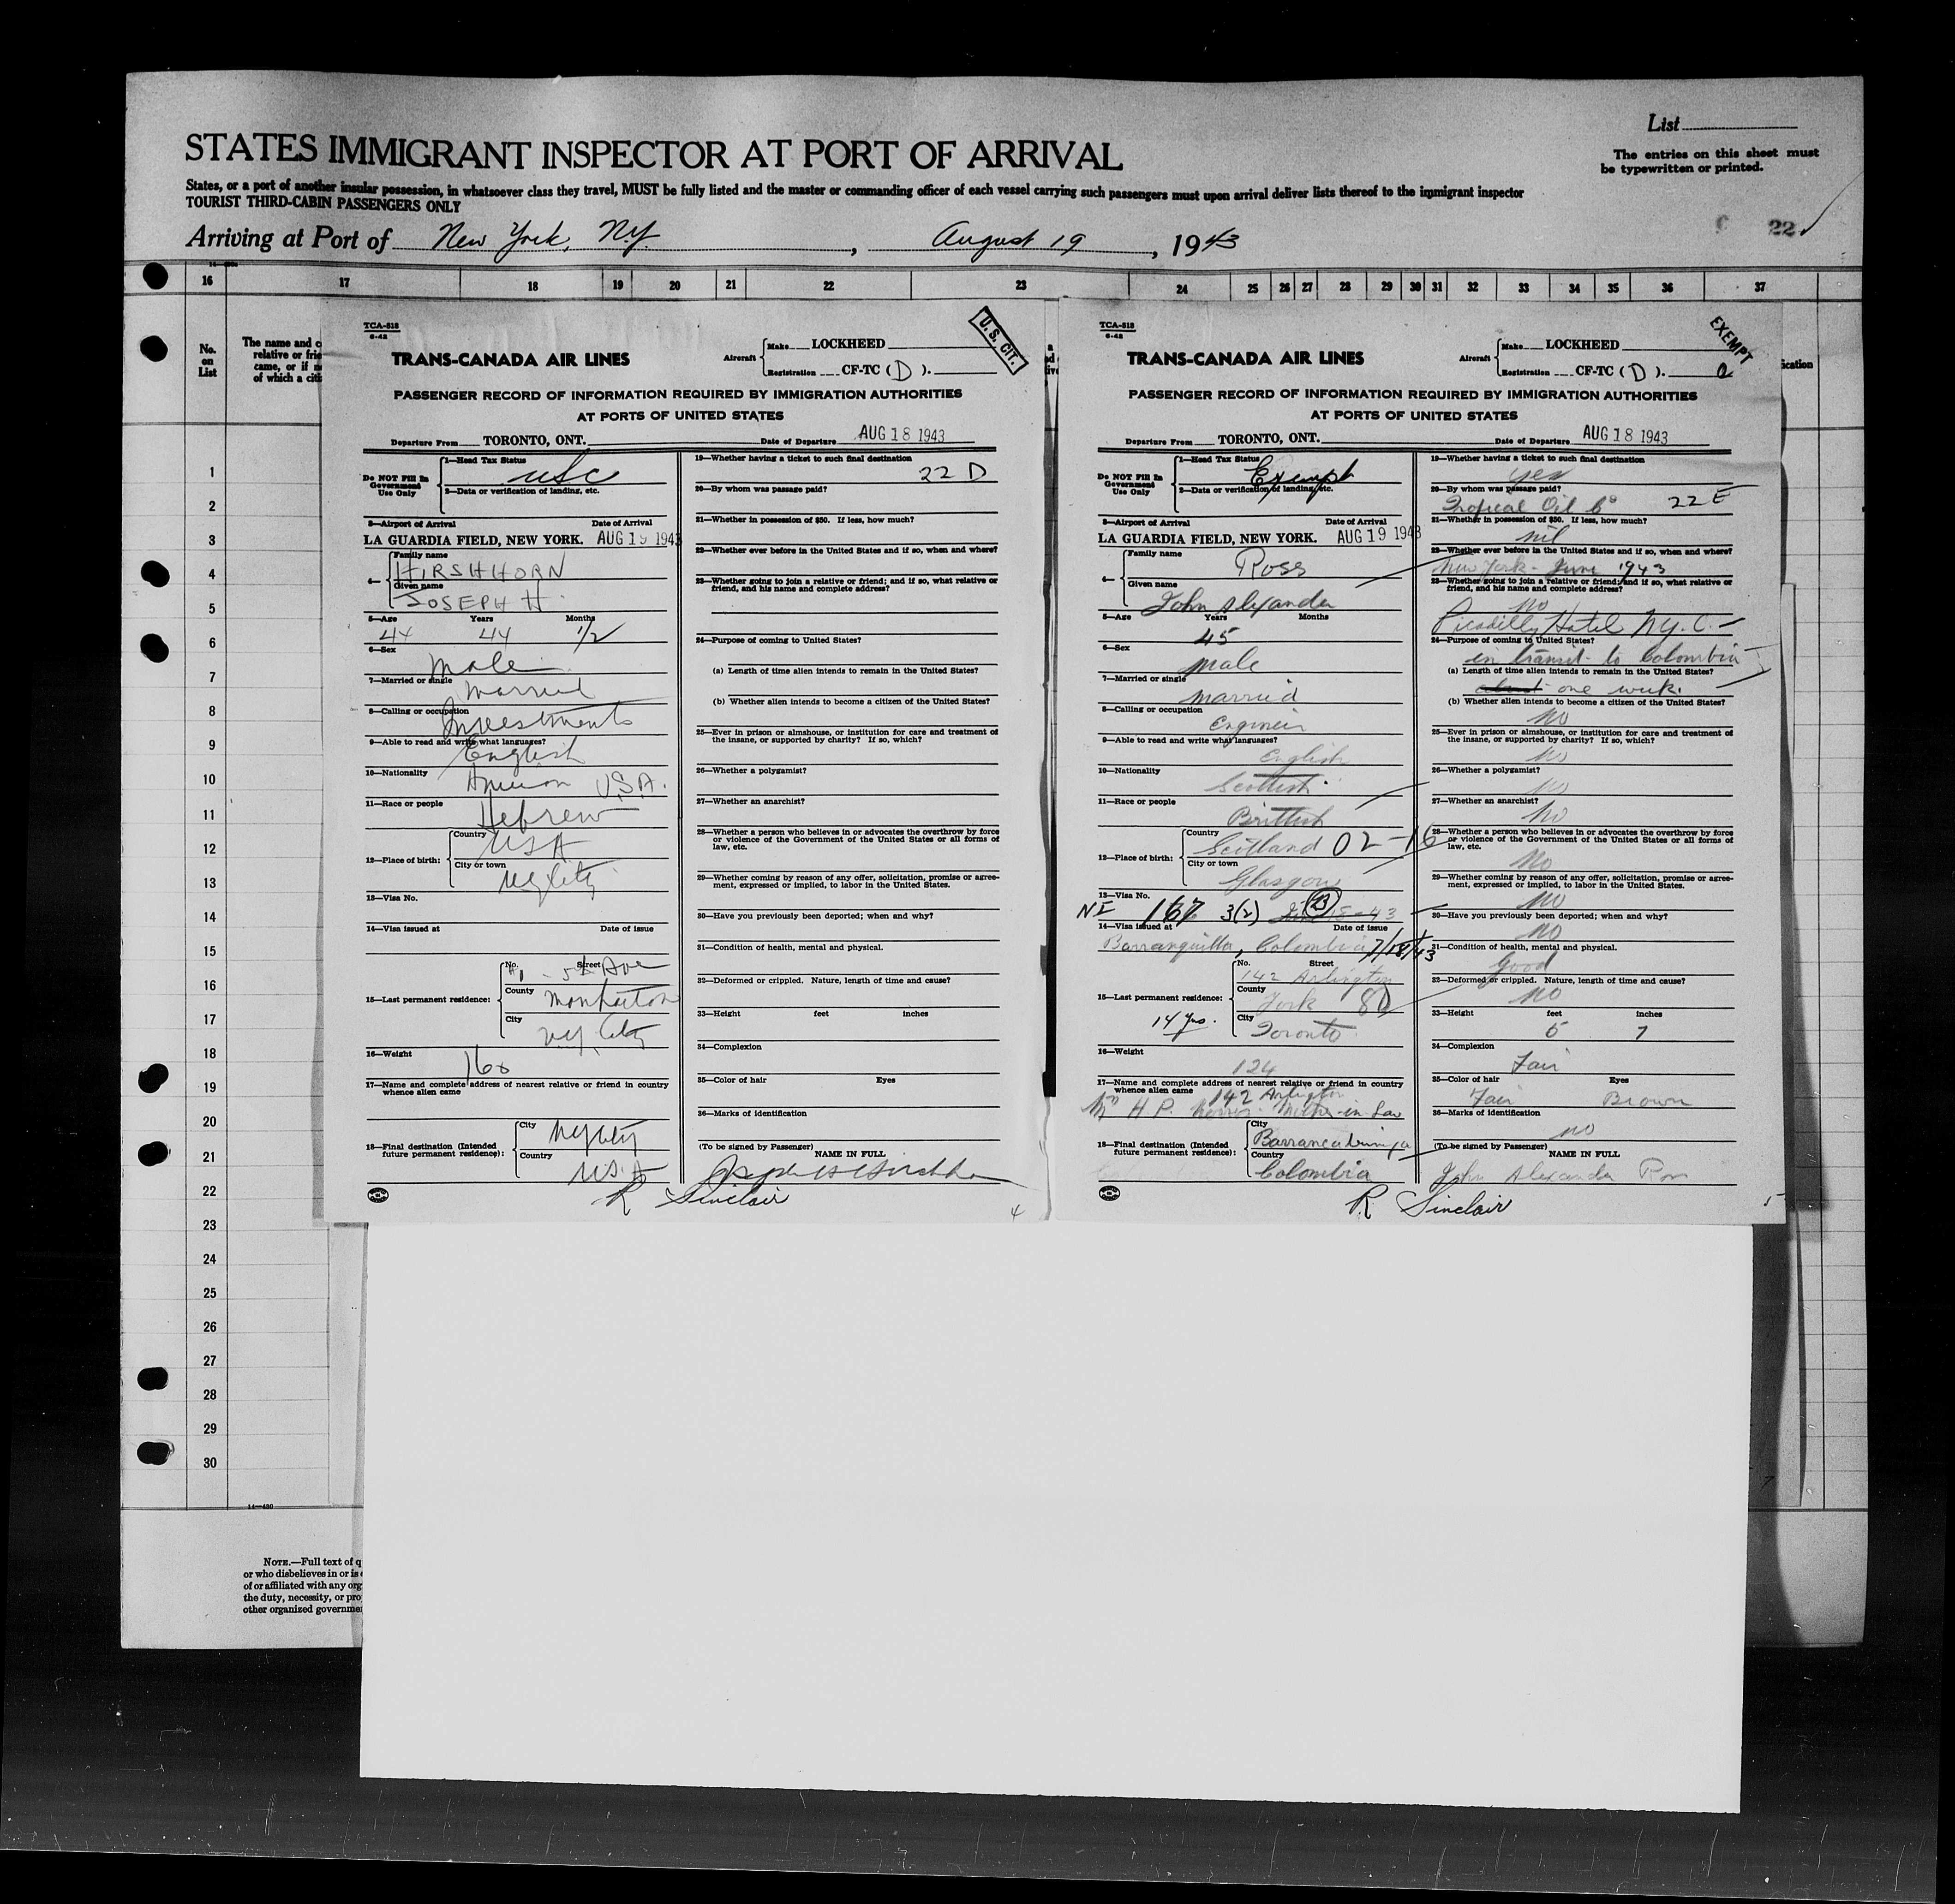 List
The entries on this sheet must
be typewritten or printed.
STATES IMMIGRANT INSPECTOR AT PORT OF ARRIVAL
States, or a port of another insular possession, in whatsoever class they travel, MUST be fully listed and the master or commanding officer of each vessel carrying such passengers must upon arrival deliver lists thereof to the immigrant inspector
TOURIST THIRD-CABIN PASSENGERS ONLY
22
Arriving at Port of New York, N.Y. , August 19 , 1943
16 17 18 19 20 21 22 23 24 25 26 27 28 29 30 31 32 33 34 35 36 37
No.
on
List
The name and c
relative or frie
came, or if n
of which a citi
1
2
3
4
5
6
7
8
9
10
11
12
13
14
15
16
17
18
19
20
21
22
23
24
25
26
27
28
29
30
TCA-518
6-42
U. S. CIT.
TRANS-CANADA AIR LINES
Aircraft
Make LOCKHEED
Registration CF-TC ( D ).
PASSENGER RECORD OF INFORMATION REQUIRED BY IMMIGRATION AUTHORITIES
AT PORTS OF UNITED STATES
Departure From TORONTO, ONT. Date of Departure AUG 18 1943
Do NOT Fill In
Government
Use Only
1—Head Tax Status
usc
2—Data or verification of landing, etc.
3—Airport of Arrival Date of Arrival
LA GUARDIA FIELD, NEW YORK. AUG 19 1943
4—
Family name
HIRSHHORN
Given name
JOSEPH H.
5—Age Years Months
44 44 1/2
6—Sex
Male
7—Married or single
Married
8—Calling or occupation
Investments
9—Able to read and write what languages?
English
10—Nationality
U.S.A.
11—Race or people
Hebrew
12—Place of birth:
Country
USA
City or town
NY City
13—Visa No.
14—Visa issued at Date of issue
15—Last permanent residence:
No. Street
5th Ave
County
Manhattan
City
N.Y. City
16—Weight
160
17—Name and complete address of nearest relative or friend in country
whence alien came
18—Final destination (Intended
future permanent residence):
City
NY City
Country
U.S.A
19—Whether having a ticket to such final destination
22 D
20—By whom was passage paid?
21—Whether in possession of $50. If less, how much?
22—Whether ever before in the United States and if so, when and where?
23—Whether going to join a relative or friend; and if so, what relative or
friend, and his name and complete address?
24—Purpose of coming to United States?
(a) Length of time alien intends to remain in the United States?
(b) Whether alien intends to become a citizen of the United States?
25—Ever in prison or almshouse, or institution for care and treatment of
the insane, or supported by charity? If so, which?
26—Whether a polygamist?
27—Whether an anarchist?
28—Whether a person who believes in or advocates the overthrow by force
or violence of the Government of the United States or all forms of
law, etc.
29—Whether coming by reason of any offer, solicitation, promise or agree-
ment, expressed or implied, to labor in the United States.
30—Have you previously been deported; when and why?
31—Condition of health, mental and physical.
32—Deformed or crippled. Nature, length of time and cause?
33—Height feet inches
34—Complexion
35—Color of hair Eyes
36—Marks of identification
(To be signed by Passenger) NAME IN FULL
R Sinclair
4
TCA-518
6-42
EXEMPT
TRANS-CANADA AIR LINES
Aircraft
Make LOCKHEED
Registration CF-TC ( D ).
PASSENGER RECORD OF INFORMATION REQUIRED BY IMMIGRATION AUTHORITIES
AT PORTS OF UNITED STATES
Departure From TORONTO, ONT. Date of Departure AUG 18 1943
Do NOT Fill In
Government
Use Only
1—Head Tax Status
Exempt
2—Data or verification of landing, etc.
3—Airport of Arrival Date of Arrival
LA GUARDIA FIELD, NEW YORK. AUG 19 1943
4—
Family name
Ross
Given name
John Alexander
5—Age Years Months
45
6—Sex
Male
7—Married or single
Married
8—Calling or occupation
Engineer
9—Able to read and write what languages?
English
10—Nationality
Scottish
11—Race or people
Brittish
12—Place of birth:
Country
Scotland 02-16
City or town
Glasgow
13—Visa No.
NI 167 3(2) 23
14—Visa issued at Date of issue
Barranquilla, Colombia 7/18/43
15—Last permanent residence:
14 yrs.
No. Street
142 Arlington
County
York 80
City
Toronto
16—Weight
124
17—Name and complete address of nearest relative or friend in country
whence alien came 142 Arlington
H. P. Mother-in-Law
18—Final destination (Intended
future permanent residence):
City
Barrancabermeja
Country
Colombia
19—Whether having a ticket to such final destination
yes
20—By whom was passage paid?
Tropical Oil Co 22 E
21—Whether in possession of $50. If less, how much?
nil
22—Whether ever before in the United States and if so, when and where?
New York - June 1943
23—Whether going to join a relative or friend; and if so, what relative or
friend, and his name and complete address?
no
Picadilly Hotel N.Y.C.
24—Purpose of coming to United States?
in transit to Colombia
(a) Length of time alien intends to remain in the United States?
about one week.
(b) Whether alien intends to become a citizen of the United States?
No
25—Ever in prison or almshouse, or institution for care and treatment of
the insane, or supported by charity? If so, which?
No
26—Whether a polygamist?
No
27—Whether an anarchist?
No
28—Whether a person who believes in or advocates the overthrow by force
or violence of the Government of the United States or all forms of
law, etc.
No
29—Whether coming by reason of any offer, solicitation, promise or agree-
ment, expressed or implied, to labor in the United States.
No
30—Have you previously been deported; when and why?
No
31—Condition of health, mental and physical.
Good
32—Deformed or crippled. Nature, length of time and cause?
No
33—Height feet inches
5 7
34—Complexion
Fair
35—Color of hair Eyes
Fair Brown
36—Marks of identification
no
(To be signed by Passenger) NAME IN FULL
John Alexander Ross
R Sinclair
5
ication
14—430
NOTE.—Full text of q
or who disbelieves in or is
of or affiliated with any org
the duty, necessity, or pro
other organized governme